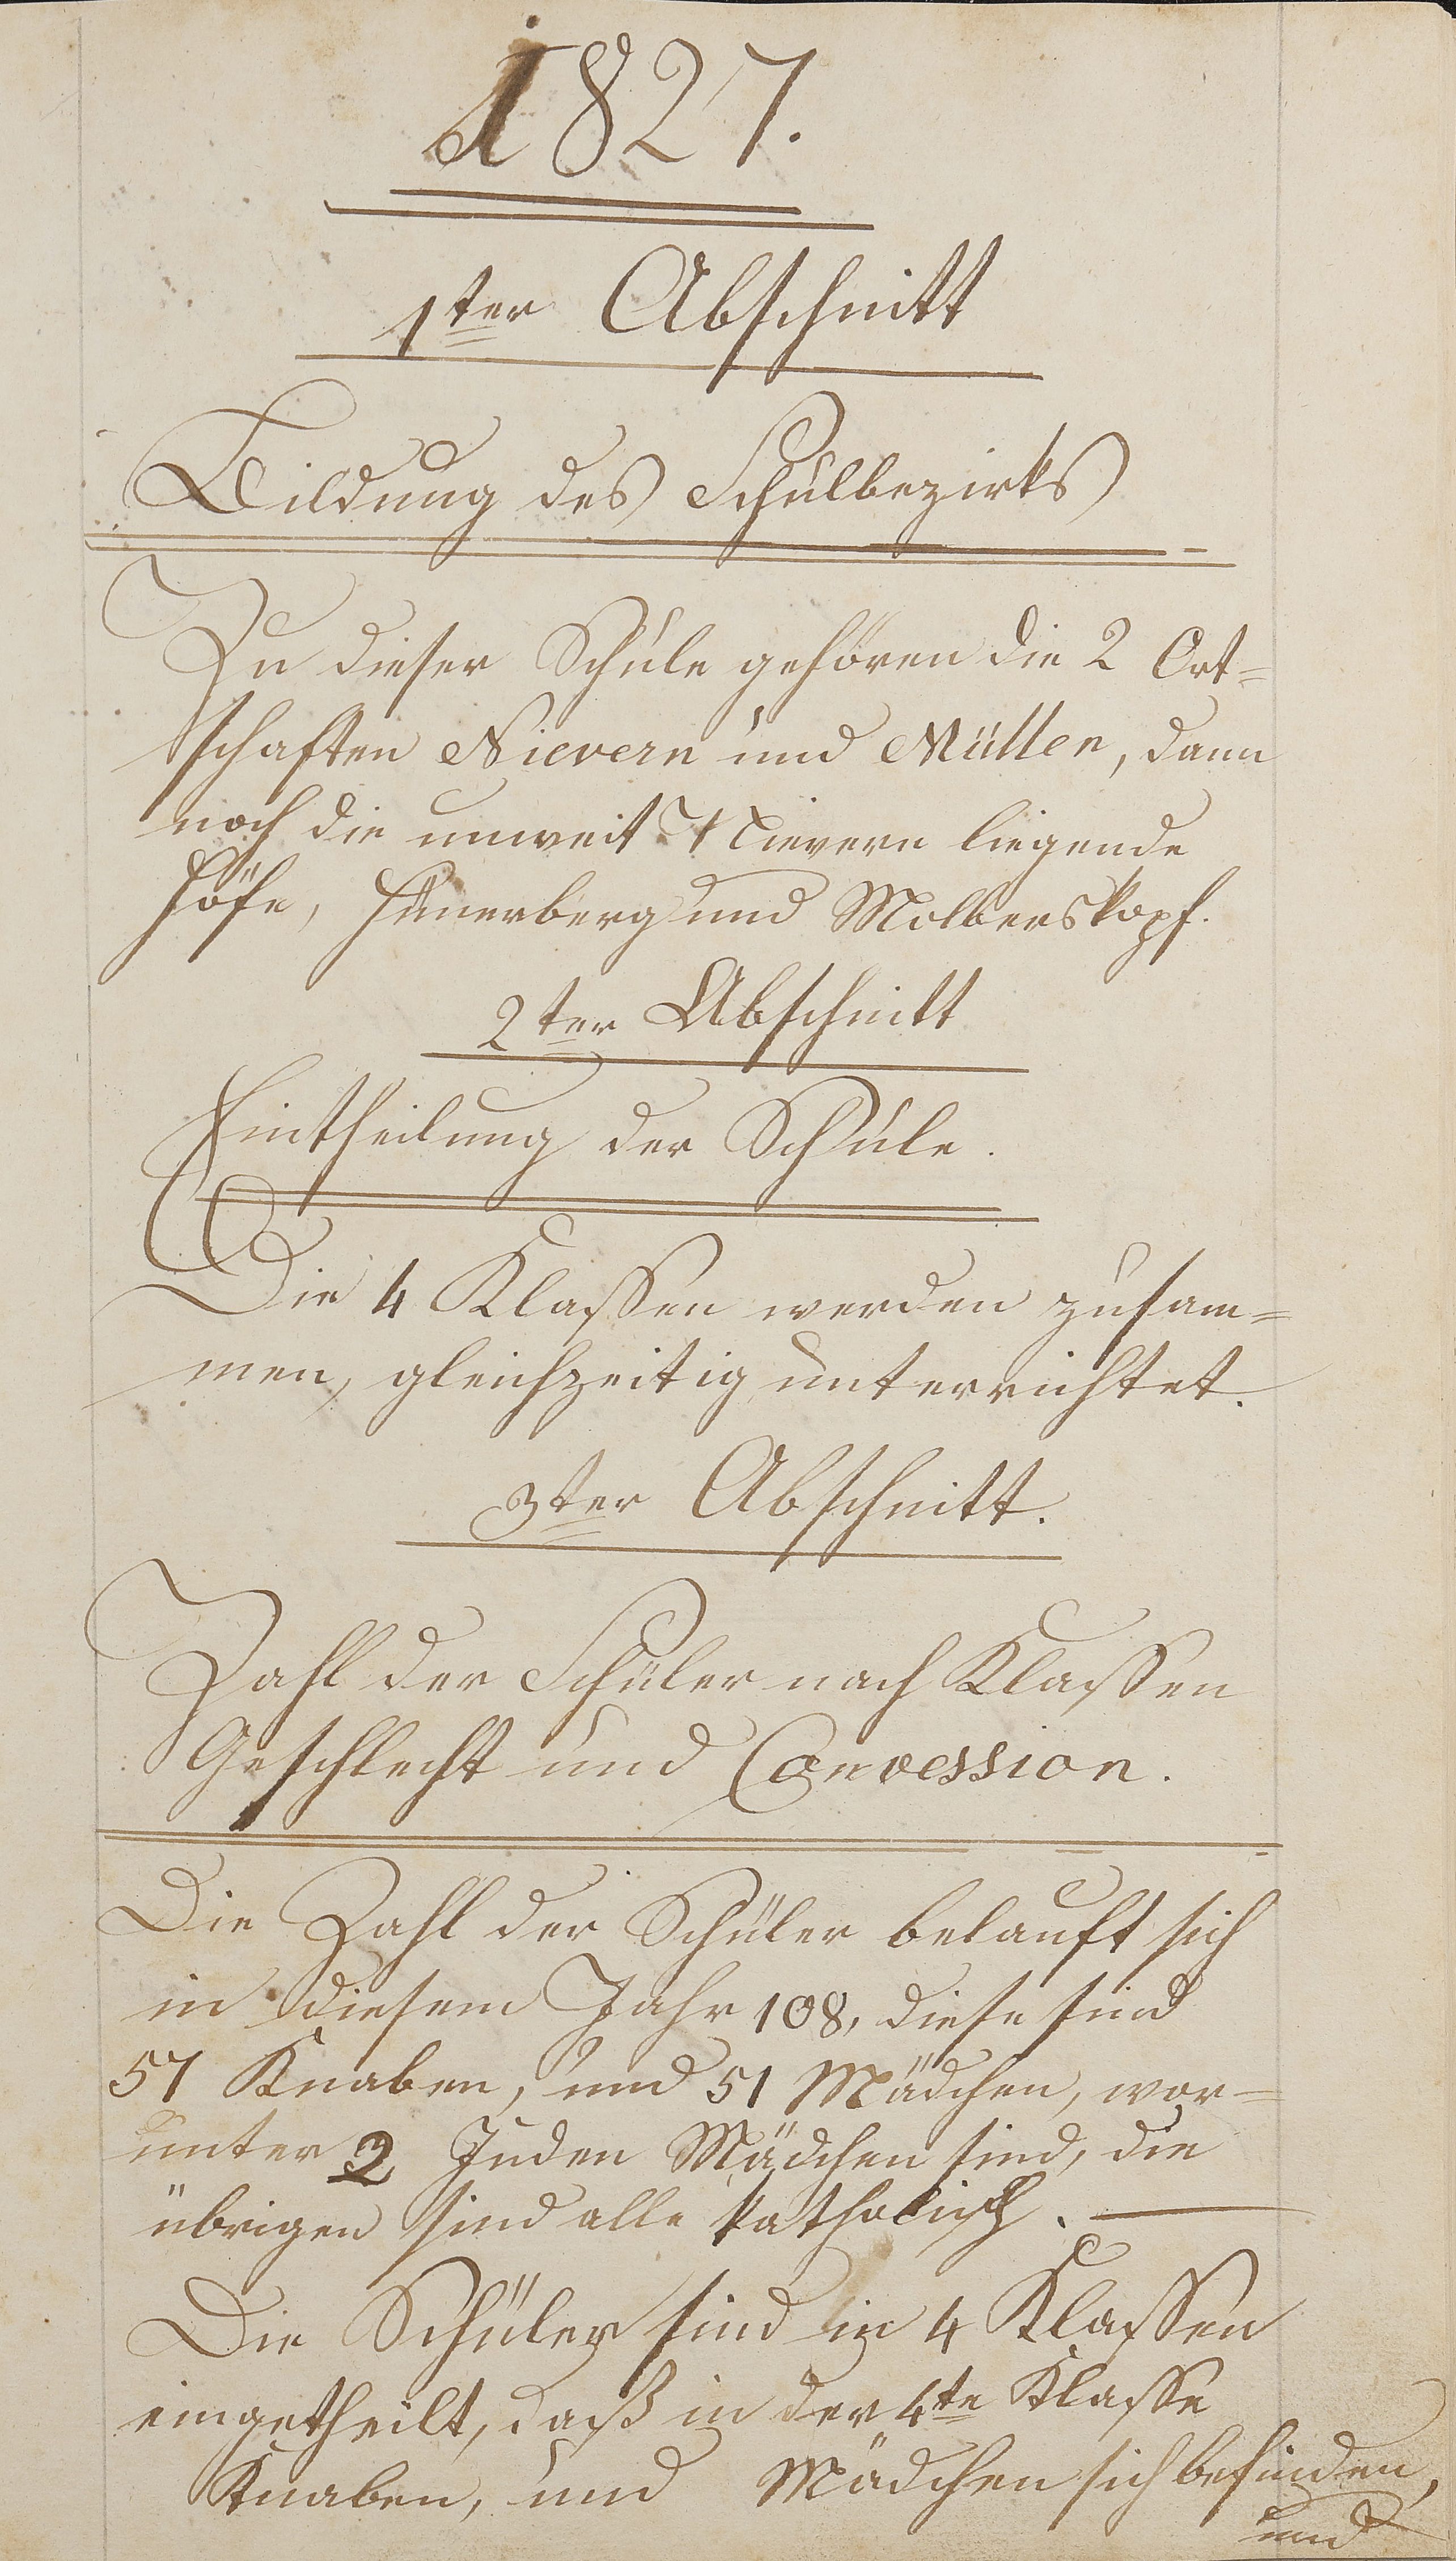 1827.
1ter Abschnitt
Bildung des Schulbezirks
Zu dieser Schule gehören die 2 Ort=
schaften Nievern und Müllen, dann
noch die unweit Nievern liegende
Höfe, Hünerberg und Molberskopf.
2ter Abschnitt
Eintheilung der Schule.
Die 4 Klassen werden zusam=
men, gleichzeitig unterrichtet.
3ter Abschnitt.
Zahl der Schüler nach Klassen
Geschlecht und Convession.
Die Zahl der Schüler belauft sich
in diesem Jahr 108, diese sind
57 Knaben, und 51 Mädchen, wor=
unter 2 Juden Mädchen sind, die
übrigen sind alle katholisch.
Die Schüler sind in 4 Klassen
eingetheilt, daß in der 4te Klasse
Knaben, und Mädchen sich befinden,
und